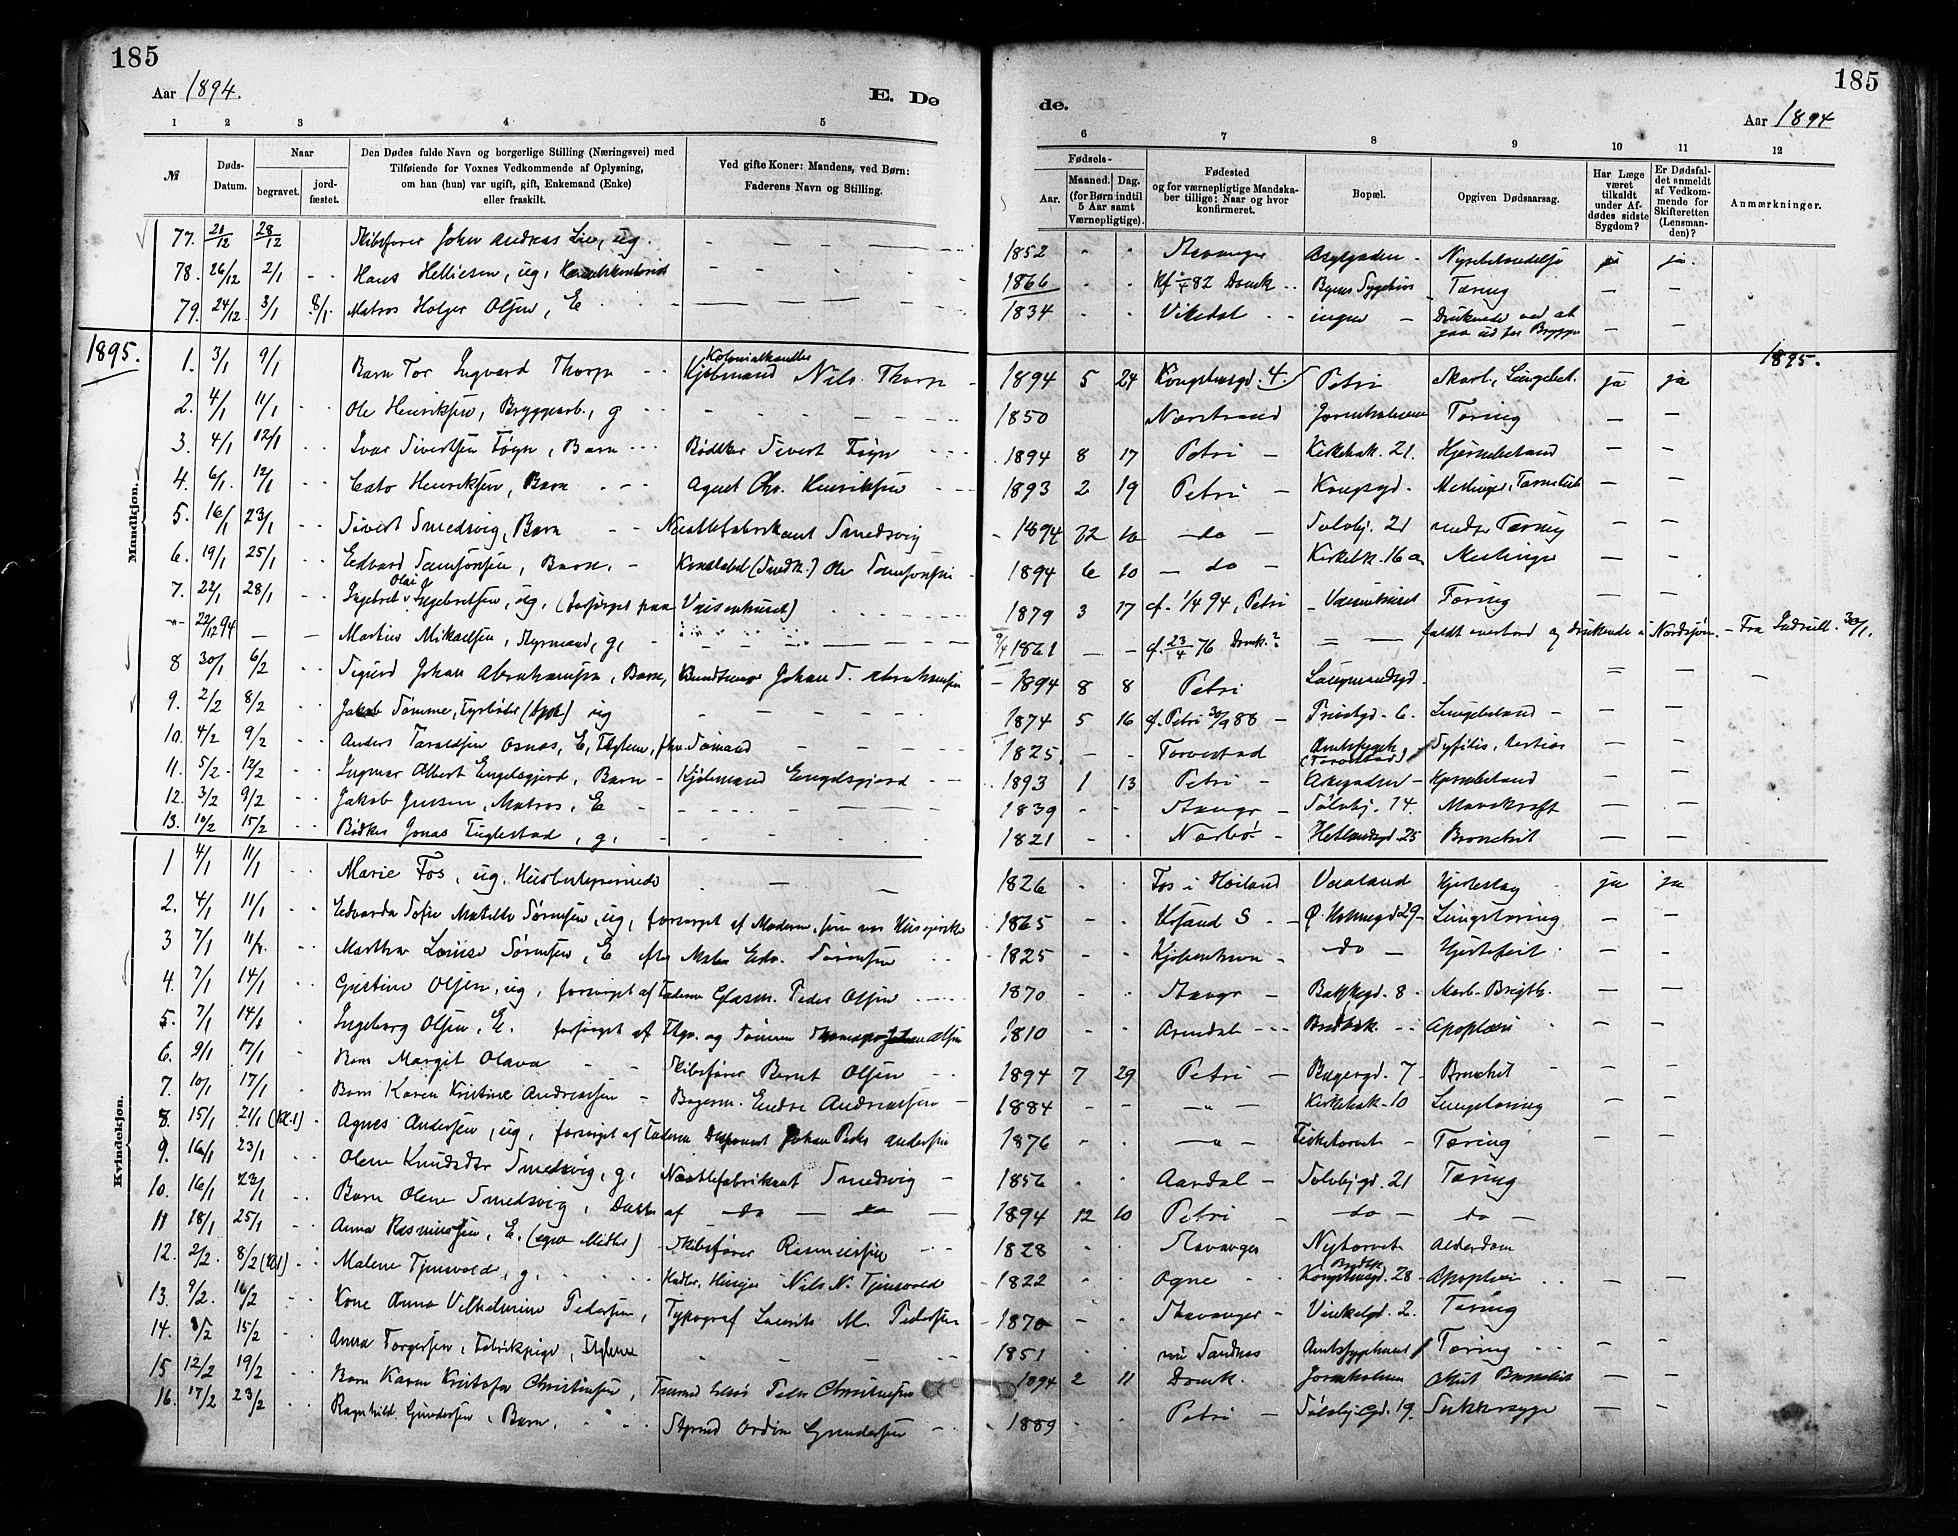 185
Aar 1894.
E. Dø
1 2 3 4 5
№ Døds-Datum. Naar begravet. jordfæstet.
Den Dødes fulde Navn og borgerlige Stilling (Næringsvei) med
Tilføiende for Voxnes Vedkommende af Oplysning,
om han (hun) var ugift, gift, Enkemand (Enke)
eller fraskilt.
Ved gifte Koner: Mandens, ved Børn:
Faderens Navn og Stilling.
77. 21/12 28/12 Skibsfører Johan Andreas Lie, ug.
78. 26/12 2/1 Hans Helliesen, ug.
79. 24/12 3/1 8/1 Matros Holger Olsen, E
1895.
Mandkjøn.
1. 3/1 9/1 Barn Tor Ingvard Thorp Kolonialhandler Kjøbmand Nils Thorp
2. 4/1 11/1 Ole Henriksen, Bryggearb., g
3. 4/1 12/1 Ivar Sivertsen Føyn, Barn Bødker Sivert Føyn
4. 6/1 12/1 Cato Henriksen, Barn Agent Chr. Henriksen
5. 16/1 23/1 Sivert Smedsvig, Barn Smedsvig
6. 19/1 25/1 Edvard Samsonsen, Barn. Konstabel (Smedk.) Ole Samsonsen
7. 22/1 28/1 Ingebret Olai Ingebretsen, ug. (forsørget paa Vaisenhuset)
22/12 94 Martin Mikaelsen, Styrmand, g,
8 30/1 6/2 Sigurd Johan Abrahamsen, Barn, Johan S. Abrahamsen
9. 2/2 8/2 Jakob Sømme, ug
10. 4/2 9/2 Anders Taraldsen Osnes, E, fhv. Sømand
11. 5/2 12/2 Ingmar Albert Engelsgjerd, Barn Kjøbmand Engelsgjerd
12. 3/2 9/2 Jakob Jensen, Matros, E
13. 10/2 15/2 Bødker Jonas Fuglestad, g,
Kvindekjøn.
1 4/1 11/1 Marie Fos, ug. Husbestyrerinde
2. 4/1 11/1 Edvarda Sofie Matilde Sørensen, ug, forsørget af Moderen, som var
3 7/1 11/1. Martha Louise Sørensen, E efter Maler Edv. Sørensen
4. 7/1 14/1 Gustine Olsen, ug, forsørget af Faderen Glasm. Peder Olsen
5. 7/1 14/1 Ingeborg Olsen, E. forsørget af Ftgv. og Sønnen Olsen
6. 9/1 17/1 Barn Margit Olava Skibsfører Bernt Olsen
7. 10/1 17/1 Barn Karen Kristine Andreassen Bagerm. Endre Andreassen
8. 15/1 21/1 (Kl.1) Agnes Andersen, ug, forsørget af Faderen Johan Peder Andersen
9. 16/1 23/1 Olene Knudsdtr Smedsvig, g, Smedsvig
10. 16/1 23/1 Barn Olene Smedsvig, Datter af do do
11 18/1 25/1 Anna Rasmussen, E. (egne Midler) Skibsfører Rasmussen
12. 2/2. 8/2 (Kl.1) Malene Tjensvold, g. Nils N. Tjensvold
13. 9/2. 16/2 Kone Anna Vilhelmine Pedersen, Typograf Laurits M. Pedersen
14. 8/2 15/2 Anna Torgersen, Fabrikpige,
15 12/2 19/2 Barn Karen Kristofa Christensen, Peder Christensen
16. 17/2 23/2 Ragnhild Gundersen, Barn, Styrmd Ordin Gundersen
185
de.
Aar 1894
6 7 8 9 10 11 12
Fødsels-
Aar. Maaned. Dag.
(for Børn indtil
5 Aar samt
Værnepligtige).
Fødested
og for værnepligtige Mandska-
ber tillige: Naar og hvor
konfirmeret.
Bopæl.
Opgiven Dødsaarsag.
Har Læge
været
tilkaldt
under Af-
dødes sidste
Sygdom?
Er Dødsfal-
det anmeldt
af Vedkom-
mende for
Skifteretten
(Lensman-
den)?
Anmærkninger.
1852 Stavanger Asylgaden Nyrebetændelse ja ja.
1866 Kf 82 Domk. Byens Sygehus Tæring
1834 Vikedal ingen Druknede ved at gaa ud for Brygge
1895.
1894 5 24 Kongshusgd. 4. Petri Mavel., Lungebet. ja ja
1850 Nærstrand Jorenholmen Tæring
1894 8 17 Petri Kirkebak. 21. Hjernebetænd
1893 2 19 Petri Kongsgd. Meslinger,
1894 12 10 do Sølvbj. 21 Tæring
1894 6 10 do Kirkebk. 16 a Meslinger
1879 3 17 cf. 1/4 94, Petri Vaisenhuset Tæring
9/4 1861 cf. 23/4 76 Domk.? faldt overbord og druknede i Nordsjøen. Fra 30/1.
1894 8 8 Petri Langmandsgd.
1874 5 16 cf. Petri 30/9 88 6. Lungebetænd
1825 Torvestad Amtssygeh. (Torvestad) Syfilis, tertiær
1893 1 13 Petri Hjernebetænd
1839 Stavgr Sølvbj. 14. Mavekræft
1821 Nærbø Hetlandsgd 25 Bronchit
1826 Fos i Høiland Vaaland Hjerteslag ja ja
1865 Krsand S Ø. Holmegd 29 Lungetæring
1825 Kjøbenhavn do Hjertefeil
1870 Stavgr Bakkegd. 8 Morb. Brigth.
1810 Arendal Bredbak. Apoplexi
1894 7 29 Petri Bagergd. 7 Bronchit
1884 " Kirkebak 10 Lungetæring
1876 " Fisketorvet Tæring
1856 Aardal Sølvbjgd. 21 Tæring
1894 12 10 Petri do do
1828 Stavanger Nytorvet Alderdom
1822 Ogne Bredbk. Kongshusgd. 28 Apoplexi
1870 Stavanger Vinkelgd. 2. Tæring
1851 Sandnes Amtssygehuset Tæring
1894 2 11 Domk. Jorenholmen Akut Bronchit
1889 Petri Sølvbj.gd. 19. Sukkersyge